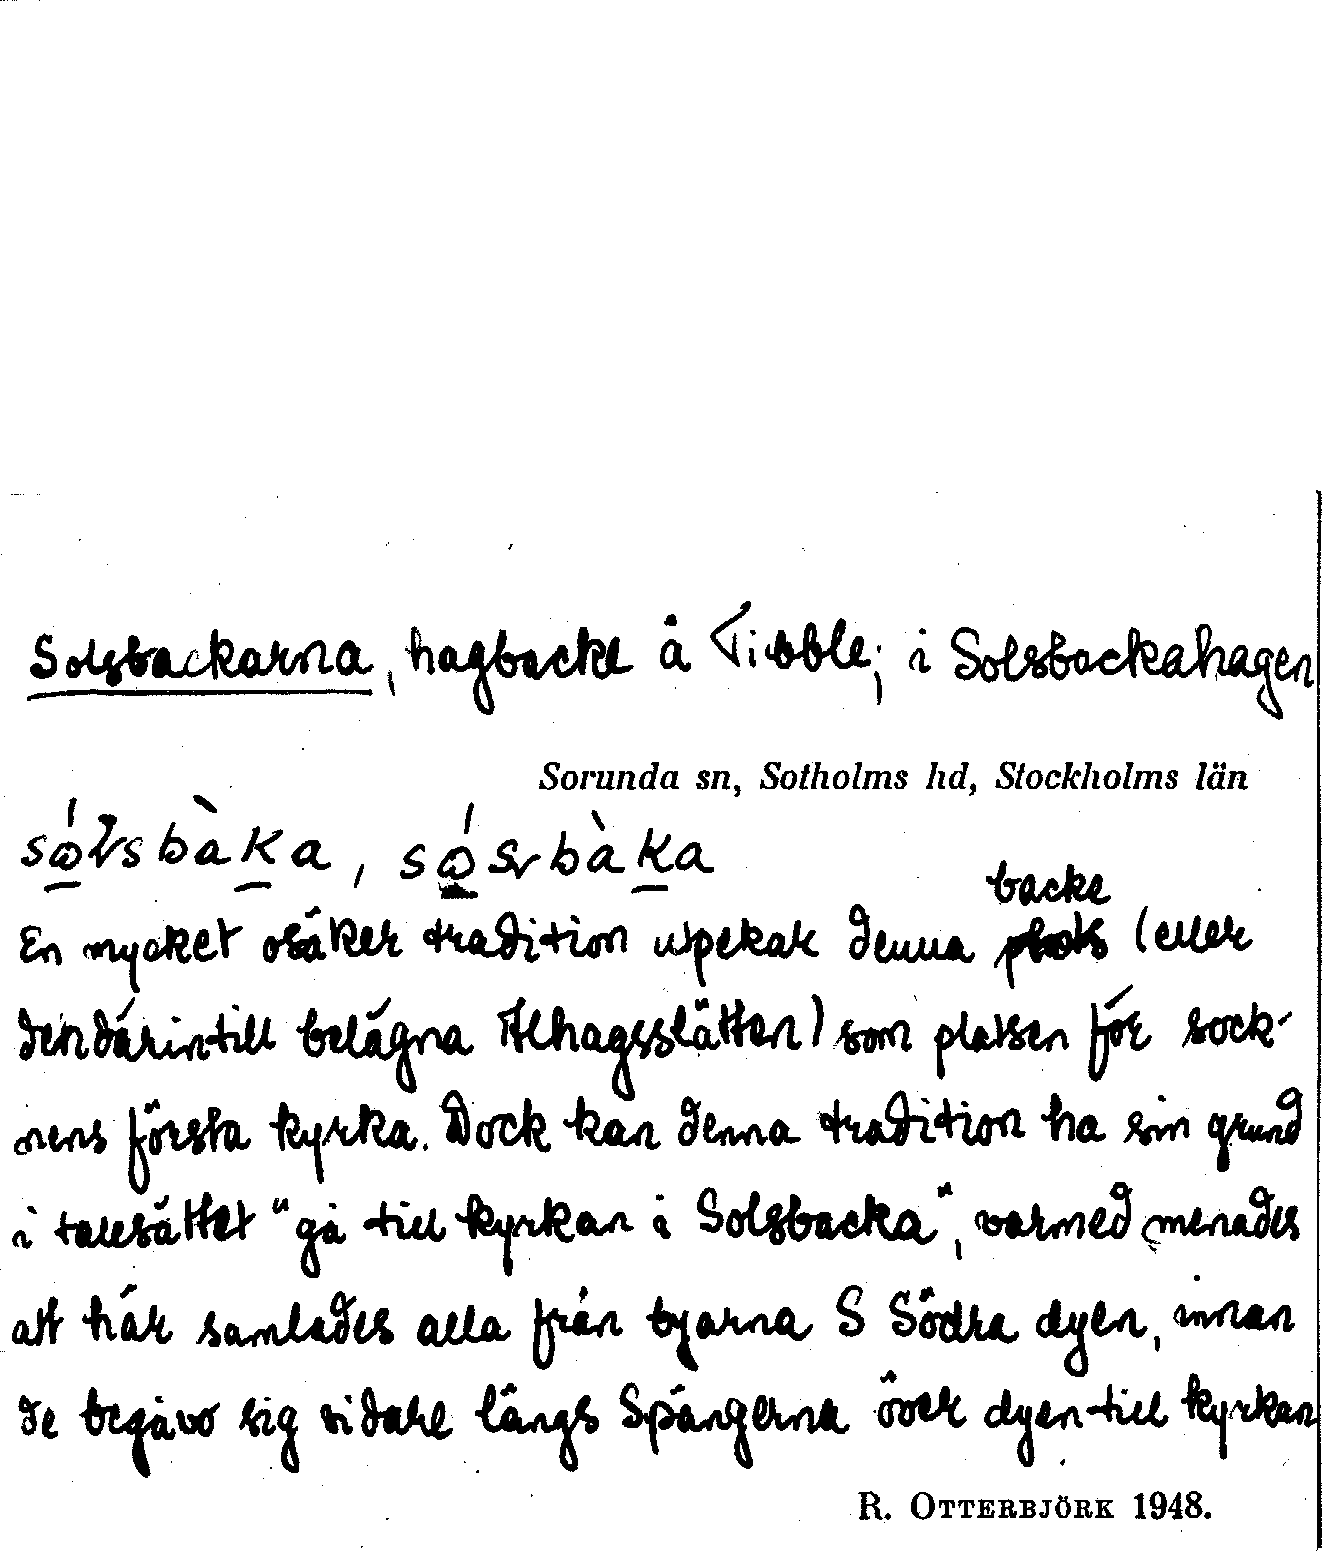 Solsbackarna, hagbacke å Tibble; i Solsbackahagen
Sorunda sn, Sotholms hd, Stockholms län
backe
En mycket osäker tradition utpekar denna plats (eller
den därintill belägna Älhagsslätten) som platsen för sock-
nens första kyrka. Dock kan denna tradition ha sin grund
i talesättet "gå till kyrkan i Solsbacka", varmed menades
att här samlades alla från byarna S Södra dyen, innan
de begåvo sig vidare längs Spångerna över dyen till kyrkan
R. OTTERBJÖRK 1948.